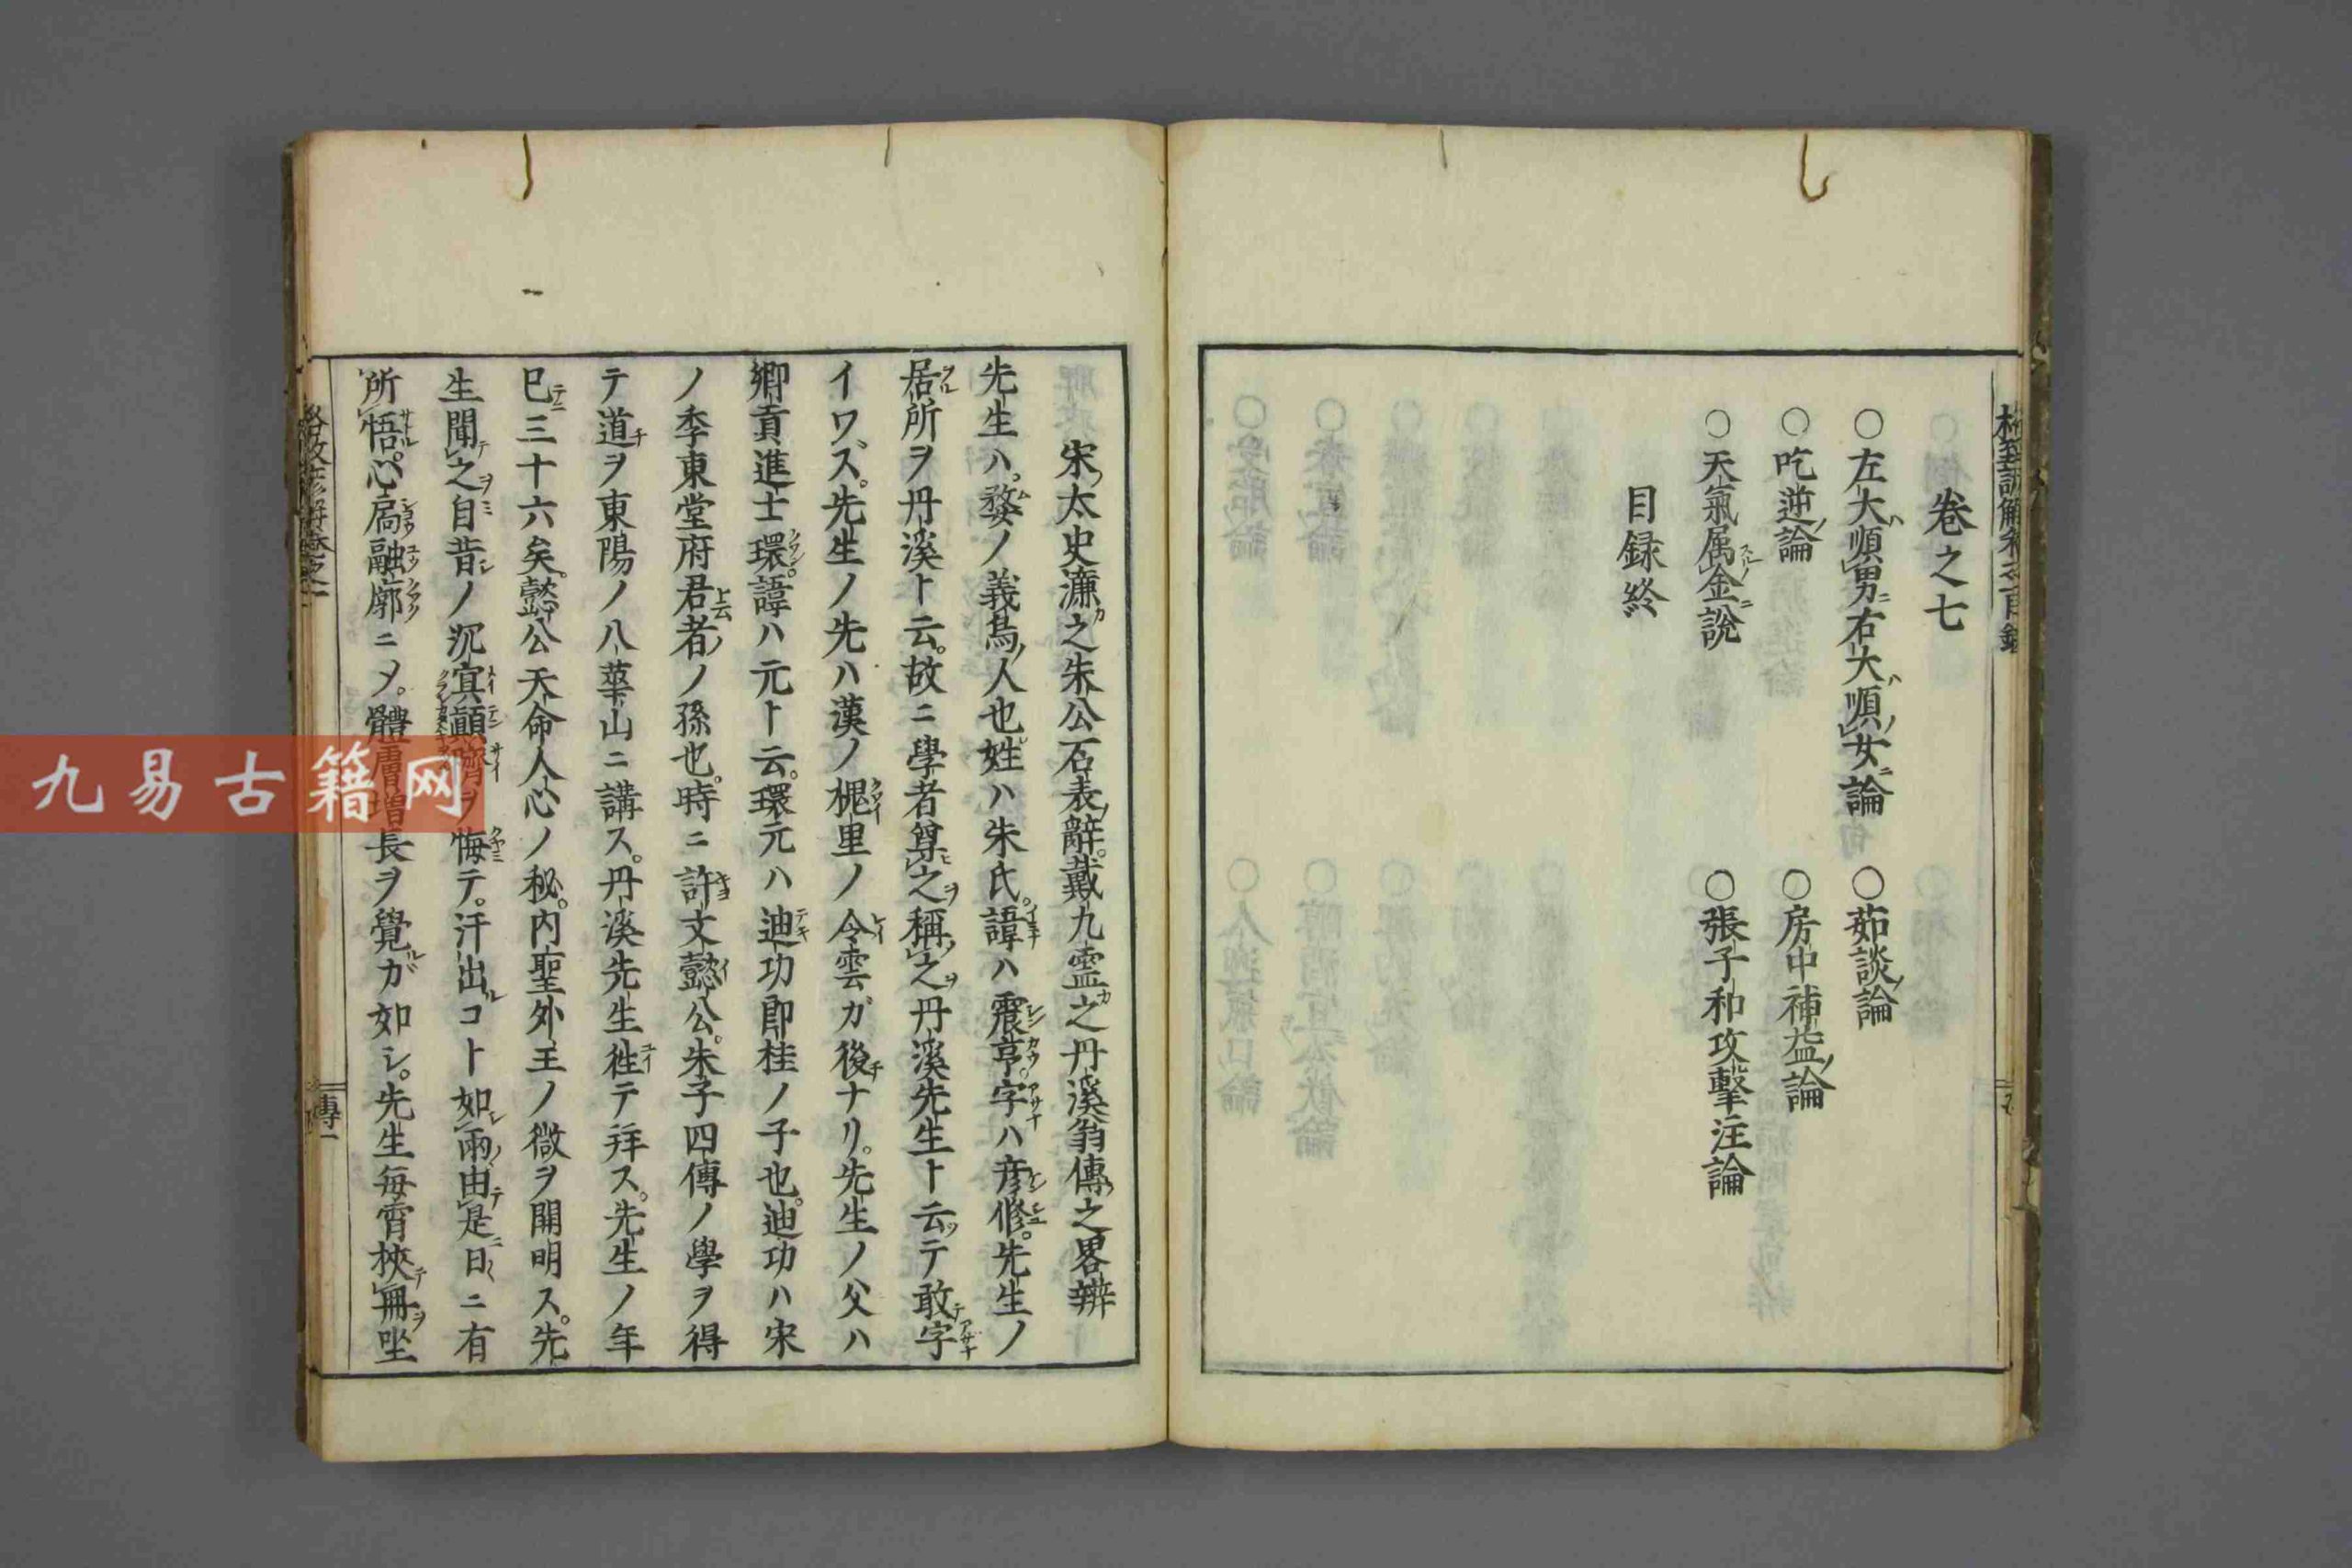 卷之七
○左大順男右大順女論
○茹談論
○吃逆論
○房中補益論
○天氣属金説
○張子和攻擊注論
目録終
宋太史濂之朱公石表辭戴九靈之丹溪翁傳之畧辨
先生ハ婺ノ義烏人也姓ハ朱氏諱ハ震亨字ハ彦修先生ノ
居所ヲ丹溪ト云故ニ學者尊之稱之丹溪先生ト云テ敢字
イワス先生ノ先ハ漢ノ槐里ノ令雲ガ後ナリ先生ノ父ハ
郷貢進士環諱ハ元ト云環元ハ迪功郎桂ノ子也迪功ハ宋
ノ季東堂府君者ノ孫也時ニ許文懿公朱子四傳ノ學ヲ得
テ道ヲ東陽ノ八華山ニ講ス丹溪先生徃テ拜ス先生ノ年
巳三十六矣懿公天命人心ノ秘内聖外王ノ微ヲ開明ス先
生聞之自昔ノ沉冥顛隮ヲ悔テ汗出コト如雨由是日ニ有
所悟心扃融廓ニメ體膚增長ヲ覺ガ如シ先生毎宵挾冊坐
傳一
九易古籍网